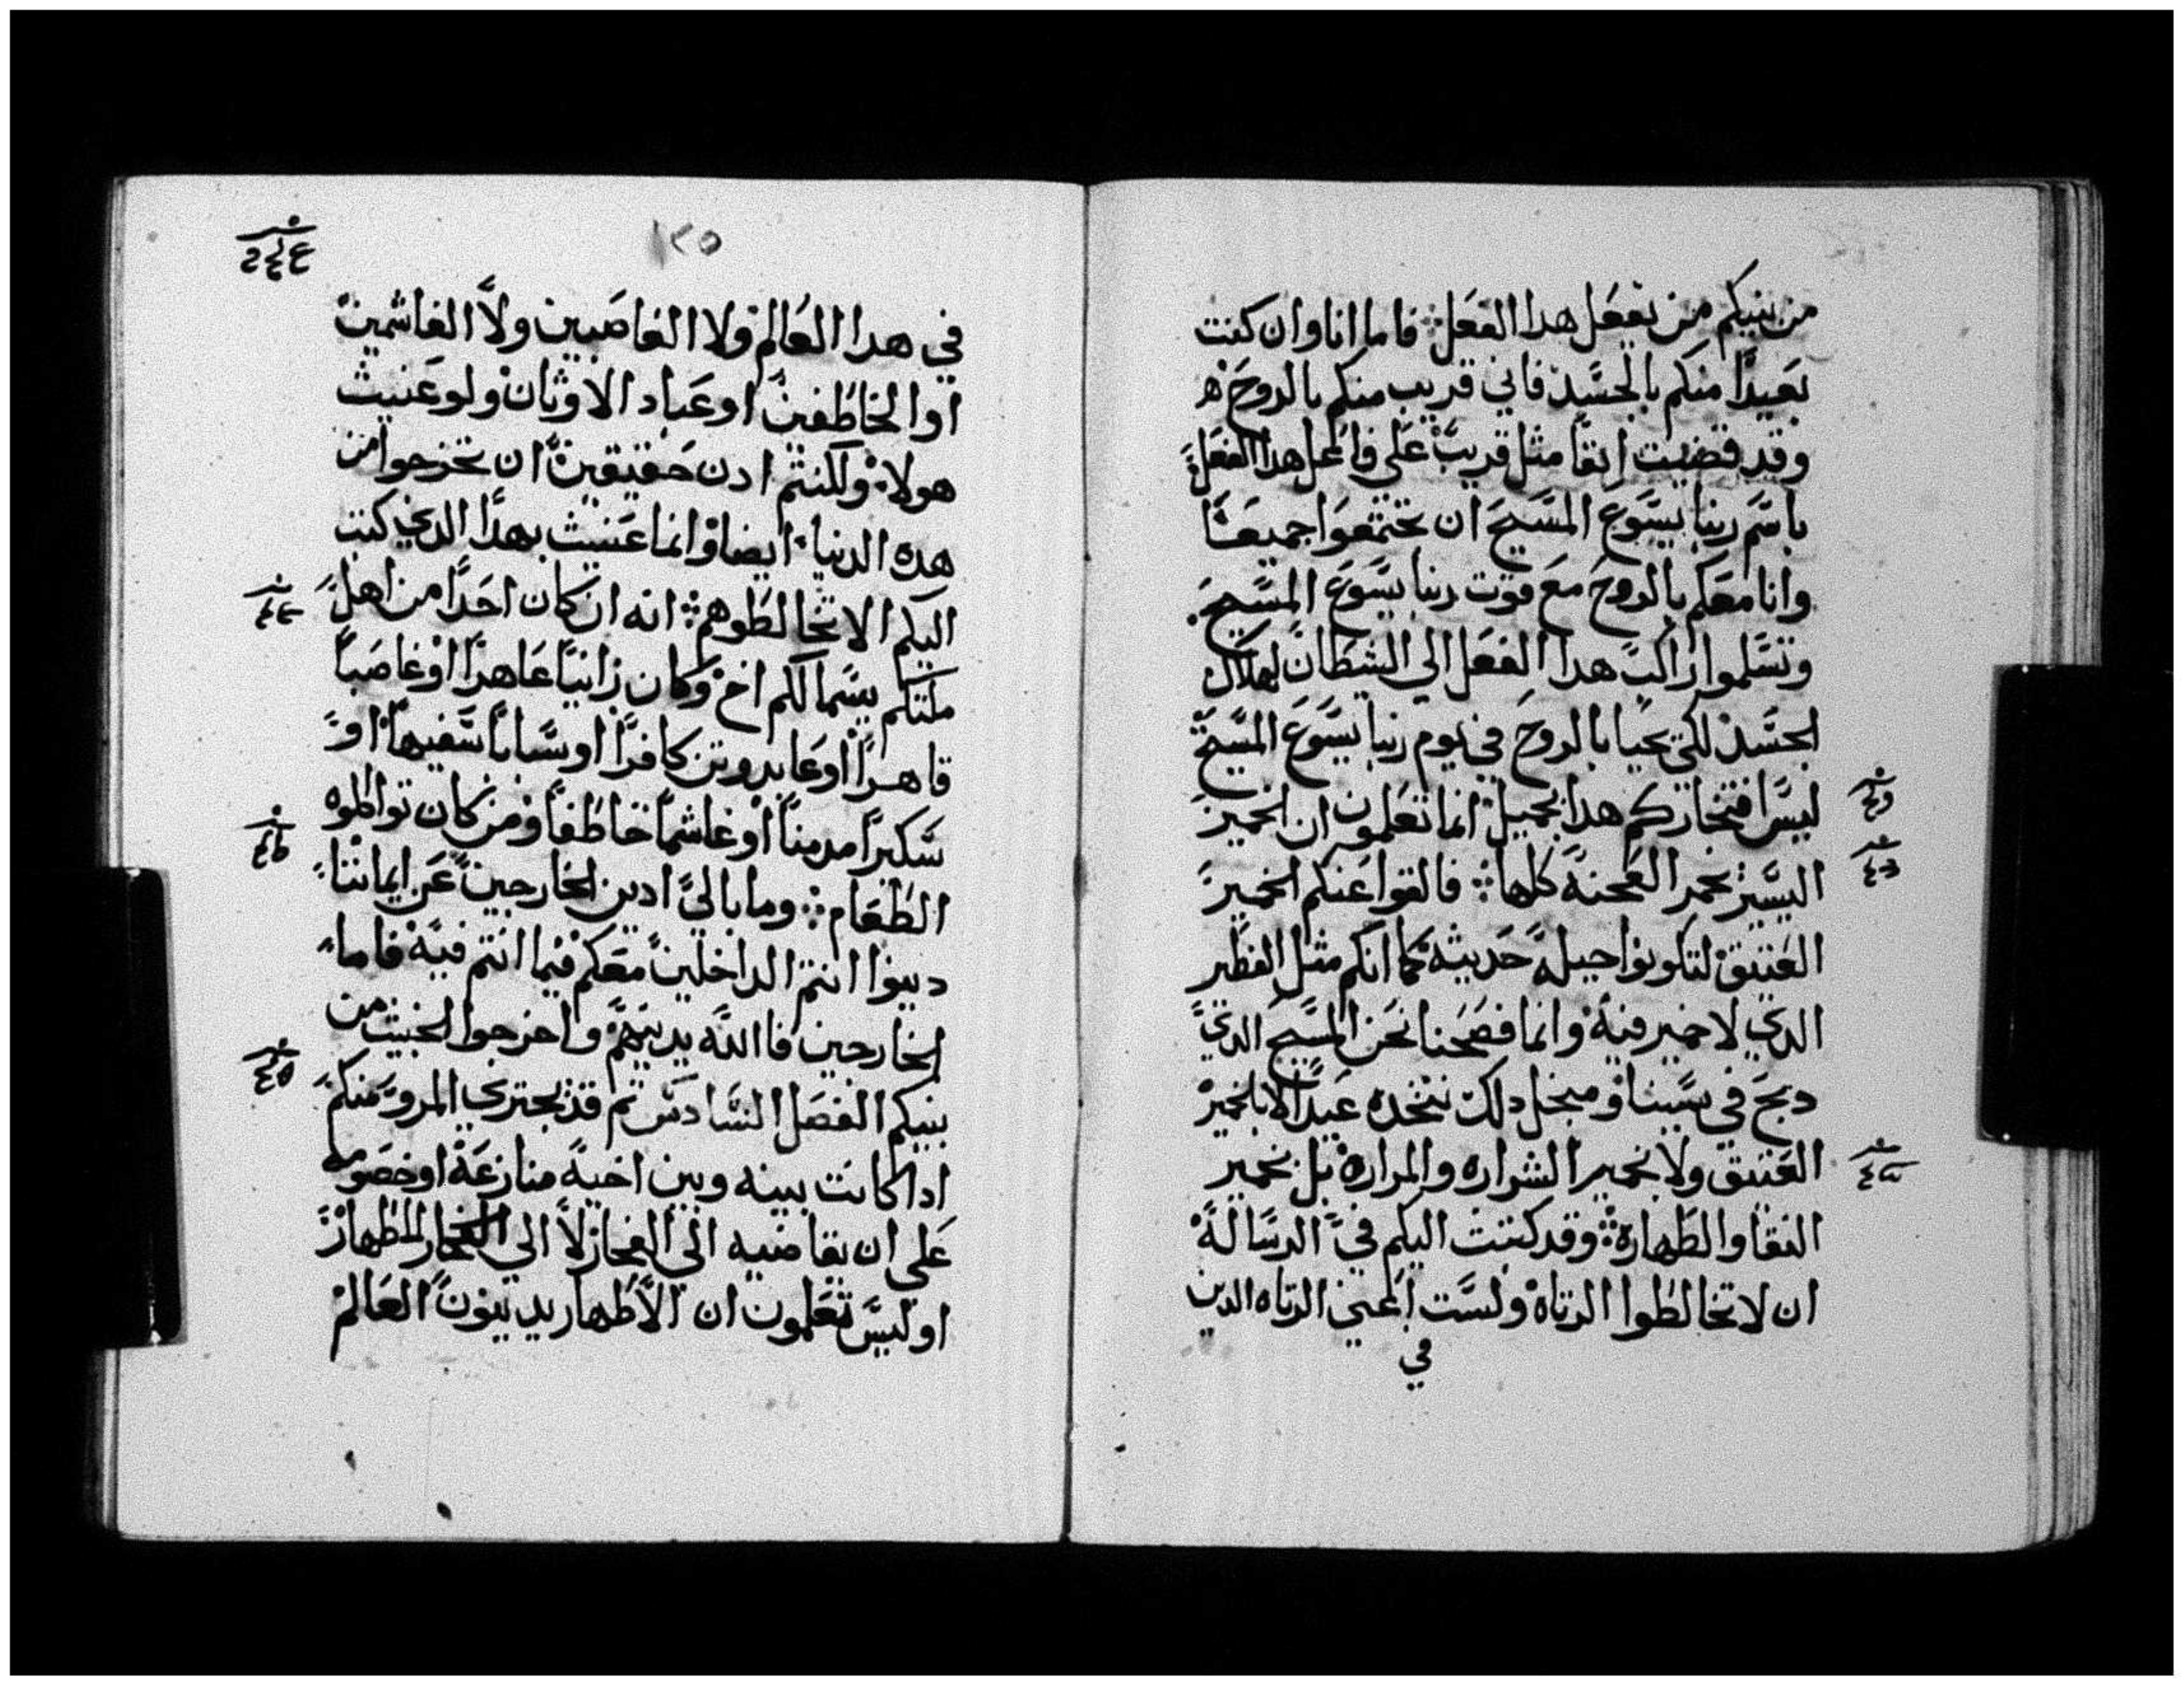 من بينكم من يفعل هدا الفعل فاما انا وان كنت
بعيدًا منكم بالجسد فاني قريب منكم بالروح
وقد قضيت انفًا مثل قريب على فاعل هدا الفعل
باسم ربنا يسوع المسيح ان تجتمعوا جميعًا
وانا معكم بالروح مع قوت ربنا يسوع المسيح
وتسلموا راكب هدا الفعل الي الشطان لهلاك
الجسد لكي يحيا بالروح في يوم ربنا يسوع المسيح
ليس افتخاركم هدا بجميل انما تعلمون ان الخمير
اليسير يخمر العجنة كلها فالقوا عنكم الخمير
العتيق لتكونوا جبلة حديثة كما انكم مثل الفطير
الدي لا خمير فيه وانما فصحنا نحن المسيح الدي
دبح في سببنا ومنجل دلك نتخده عيدًا لا بالخمير
العتيق ولا بخمير الشراره والمراره بل بخمير
النقا والطهارة وقد كتبت اليكم في الرسالة
ان لا تخالطوا الزناة ولست اعني الزناه الدين
في
١٢٥
في هدا العالم ولا الغاصبين ولا الغاشمين
او الخاطفين او عباد الاوثان ولو عنيت
هولاء ولكنتم ادن حقيقين ان تخرجوا من
هده الدنيا ايضا وانما عنيت بهدا الدي كتبت
اليكم الا تخالطوهم انه ان كان احدًا من اهل
ملتكم يسما لكم اخ وكان زانيًا عاهرًا او غاصبًا
قاهرًا او عابد وتن كافرًا او سبابًا سفيهًا او
سكيرًا مدمنًا او غاشمًا خاطفًا ومن كان تواكلوه
الطعام وما بالي ادين الخارجين عن ايماننا
دينوا انتم الداخلين معكم فيما انتم فيه فاما
الخارجين فاالله يدينهم واخرجوا الخبيث من
بينكم الفصل السادس تم قد يجتري المرو منكم
ادا كانت بينه وبين اخيه منازعة او خصومه
على ان يقاضيه الى الفجار لا الي الاطهار
اوليس تعلمون ان الاطهار يدينون العالم